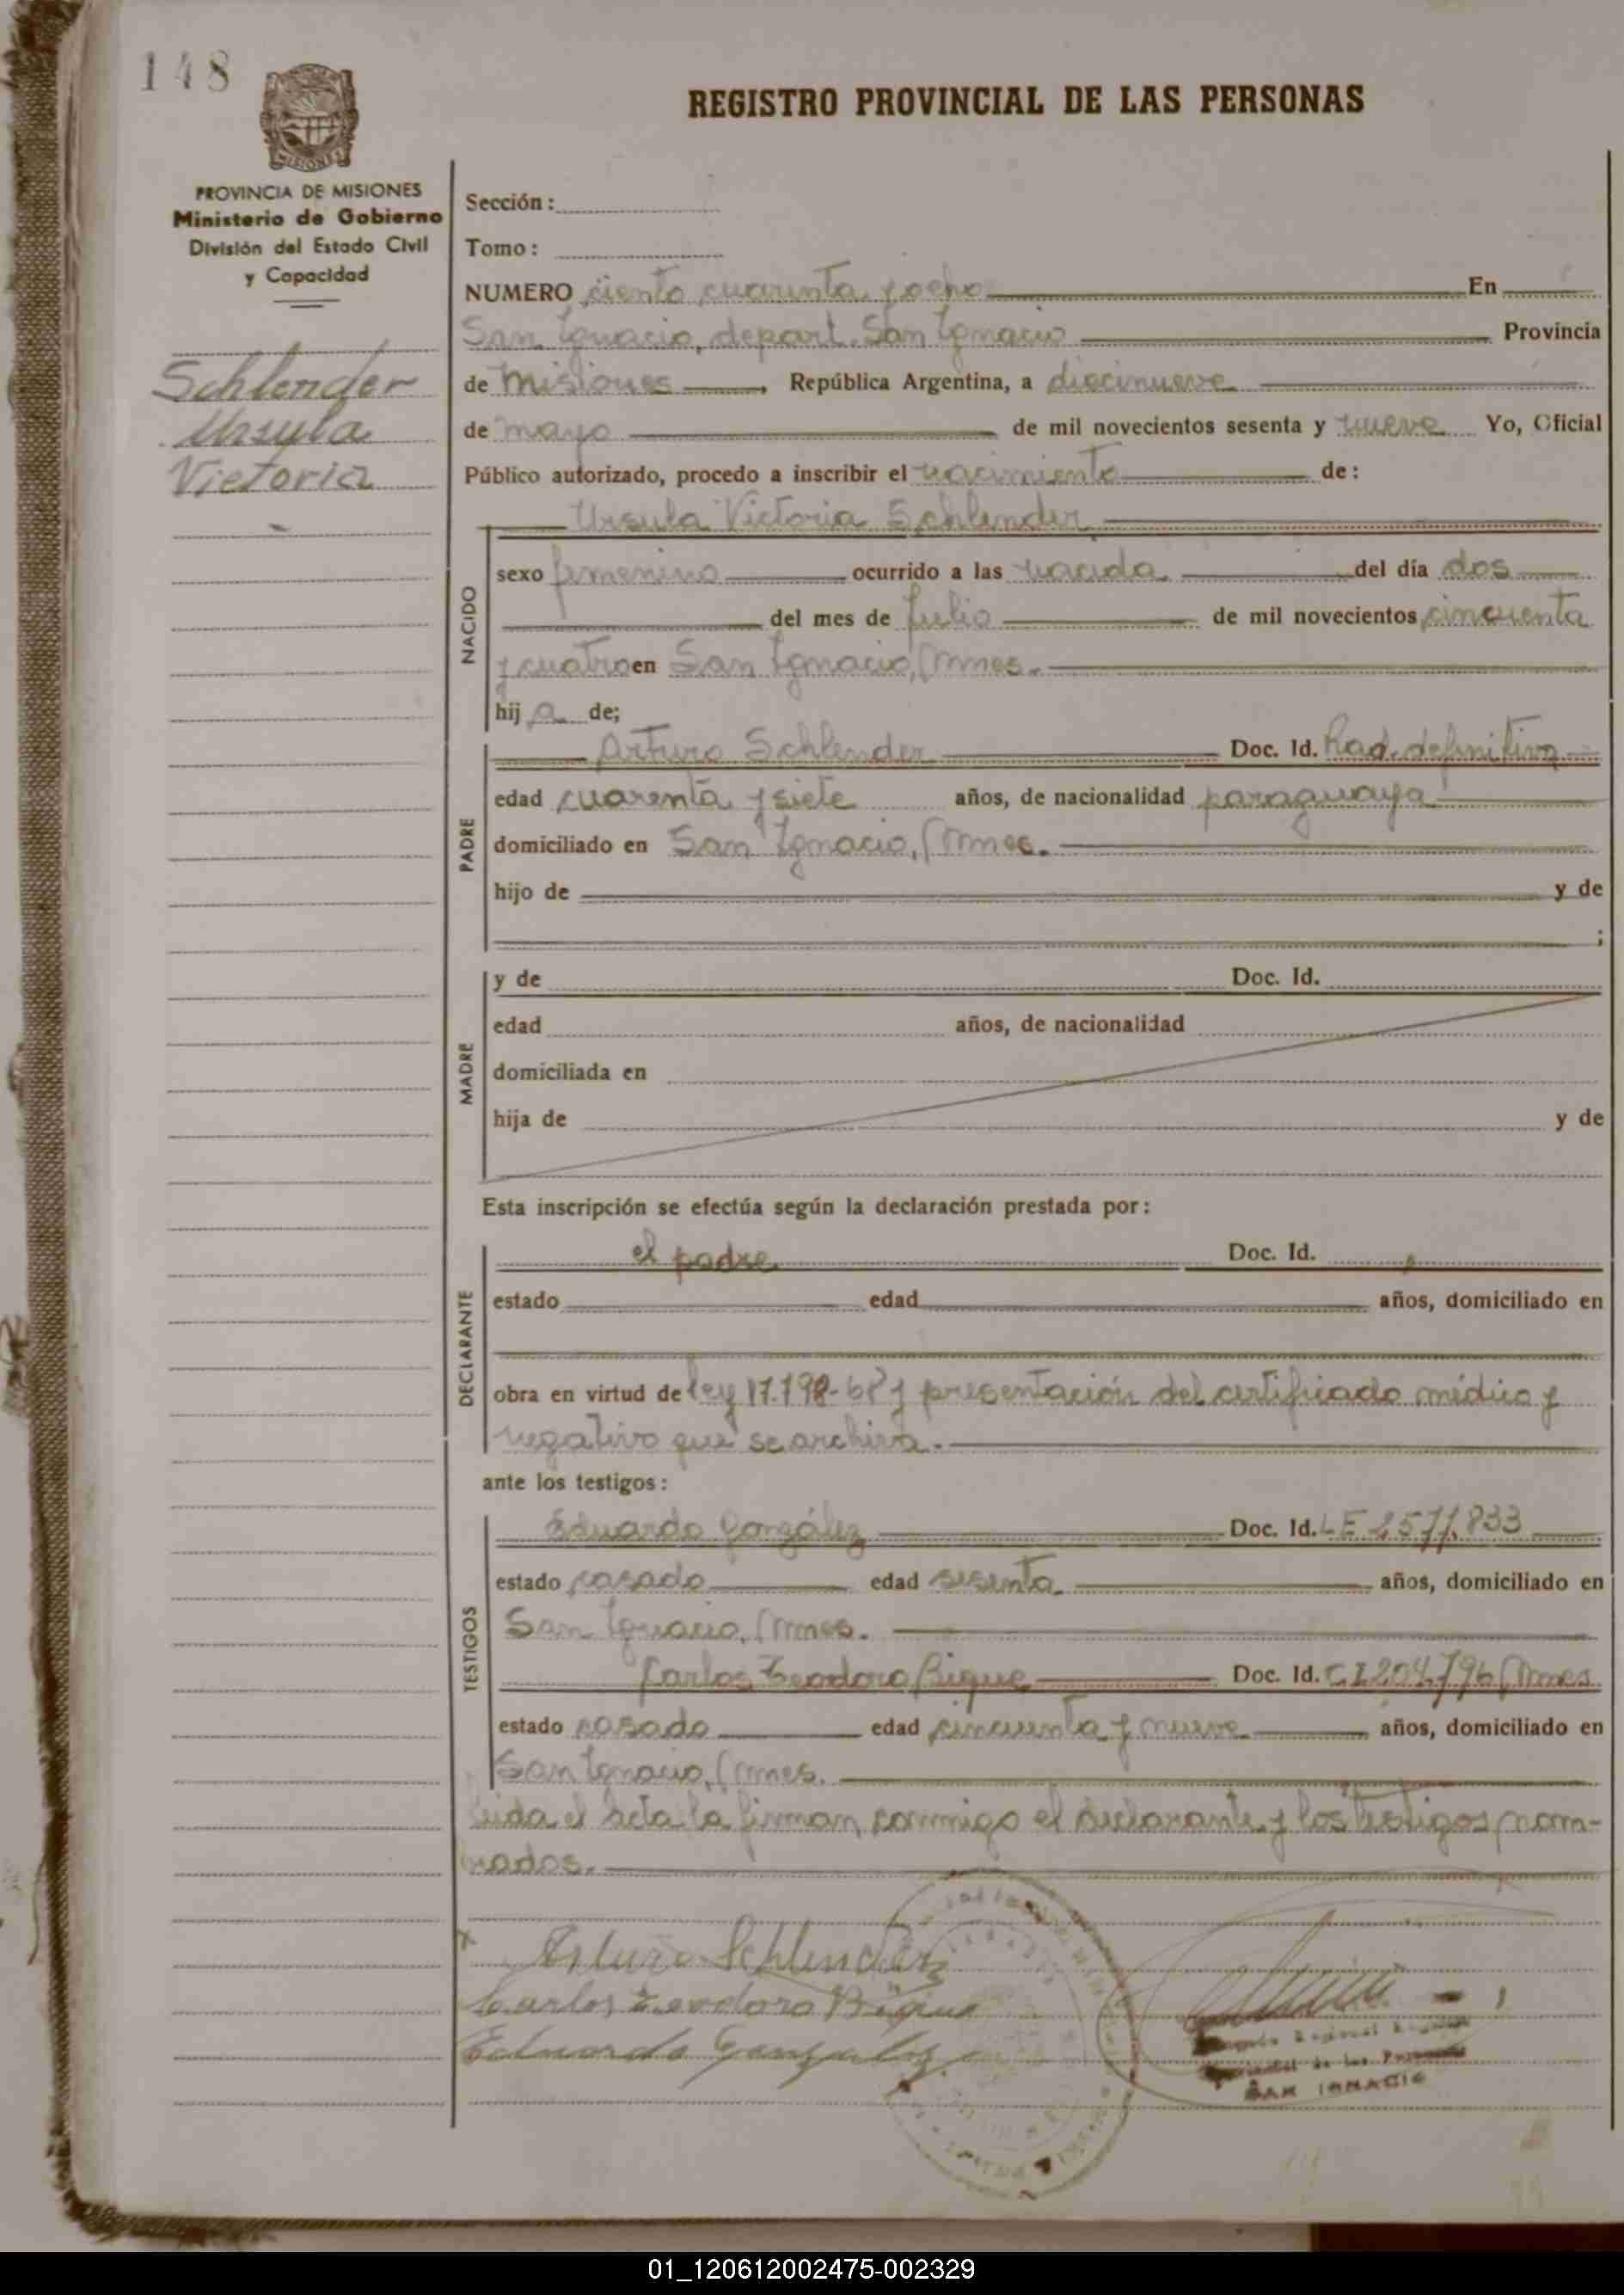 148
MISIONES
REGISTRO PROVINCIAL DE LAS PERSONAS
PROVINCIA DE MISIONES
Ministerio de Gobierno
División del Estado Civil
y Capacidad
Schlender
Ursula
Victoria
Sección:
Tomo:
NUMERO ciento cuarenta y ocho En
San Ignacio, depart. San Ignacio Provincia
de Misiones, República Argentina, a diecinueve
de mayo de mil novecientos sesenta y nueve Yo, Oficial
Público autorizado, procedo a inscribir el nacimiento de:
Ursula Victoria Schlender
NACIDO
sexo femenino ocurrido a las nacida del día dos
del mes de Julio de mil novecientos cincuenta
y cuatro en San Ignacio, Mnes.
hij a de;
PADRE
Arturo Schlender Doc. Id. Rad. definitiva
edad cuarenta y siete años, de nacionalidad paraguaya
domiciliado en San Ignacio, Mnes.
hijo de y de
;
MADRE
y de Doc. Id.
edad años, de nacionalidad
domiciliada en
hija de y de
Esta inscripción se efectúa según la declaración prestada por:
DECLARANTE
el padre Doc. Id.
estado edad años, domiciliado en
obra en virtud de ley y presentación del certificado médico y
negativo que se archiva.
ante los testigos:
TESTIGOS
Eduardo González Doc. Id. LE
estado casado edad sesenta años, domiciliado en
San Ignacio, Mnes.
Carlos Teodoro Bigue Doc. Id. C I 204796 Mnes.
estado casado edad cincuenta y nueve años, domiciliado en
San Ignacio, Mnes.
Leida el acta la firman conmigo el declarante y los testigos nom-
brados.
Arturo Schlender
Carlos Teodoro Bigue
Eduardo Gonzalez
SAN IGNACIO
01_120612002475-002329